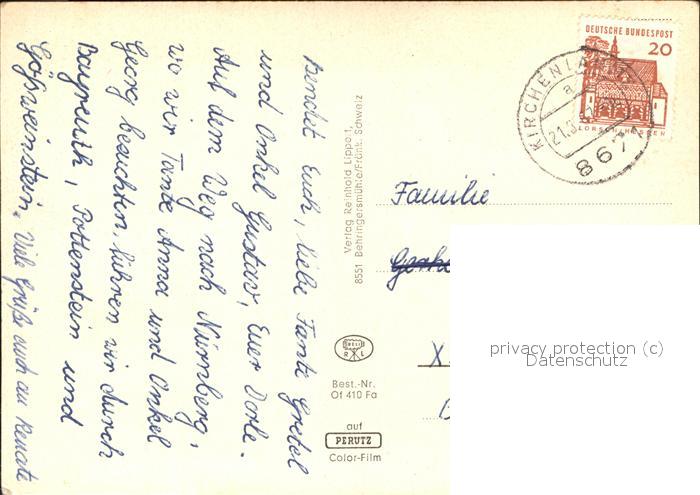 Göẞweinstein. Viele Grüße auch an Renate
Bayreuth, Pottenstein und
Georg besuchten, führen wir durch
wo wir Tante Anna und Onkel
Auf dem Weg nach Nürnberg,
und Onkel Gustav, Euer Dorle.
Bendet Euch, liebe Tante Gretel
Verlag Reinhold Lippo 1,
8551 Behringersmühle/Fränk. Schweiz
BELI
R L
Best.-Nr.
Of 410 Fa
auf
PERUTZ
Color-Film
DEUTSCHE BUNDESPOST
20
LORSCH/HESSEN
KIRCHENLA
a
21.3
867
Familie
X
privacy protection (c)
Datenschutz